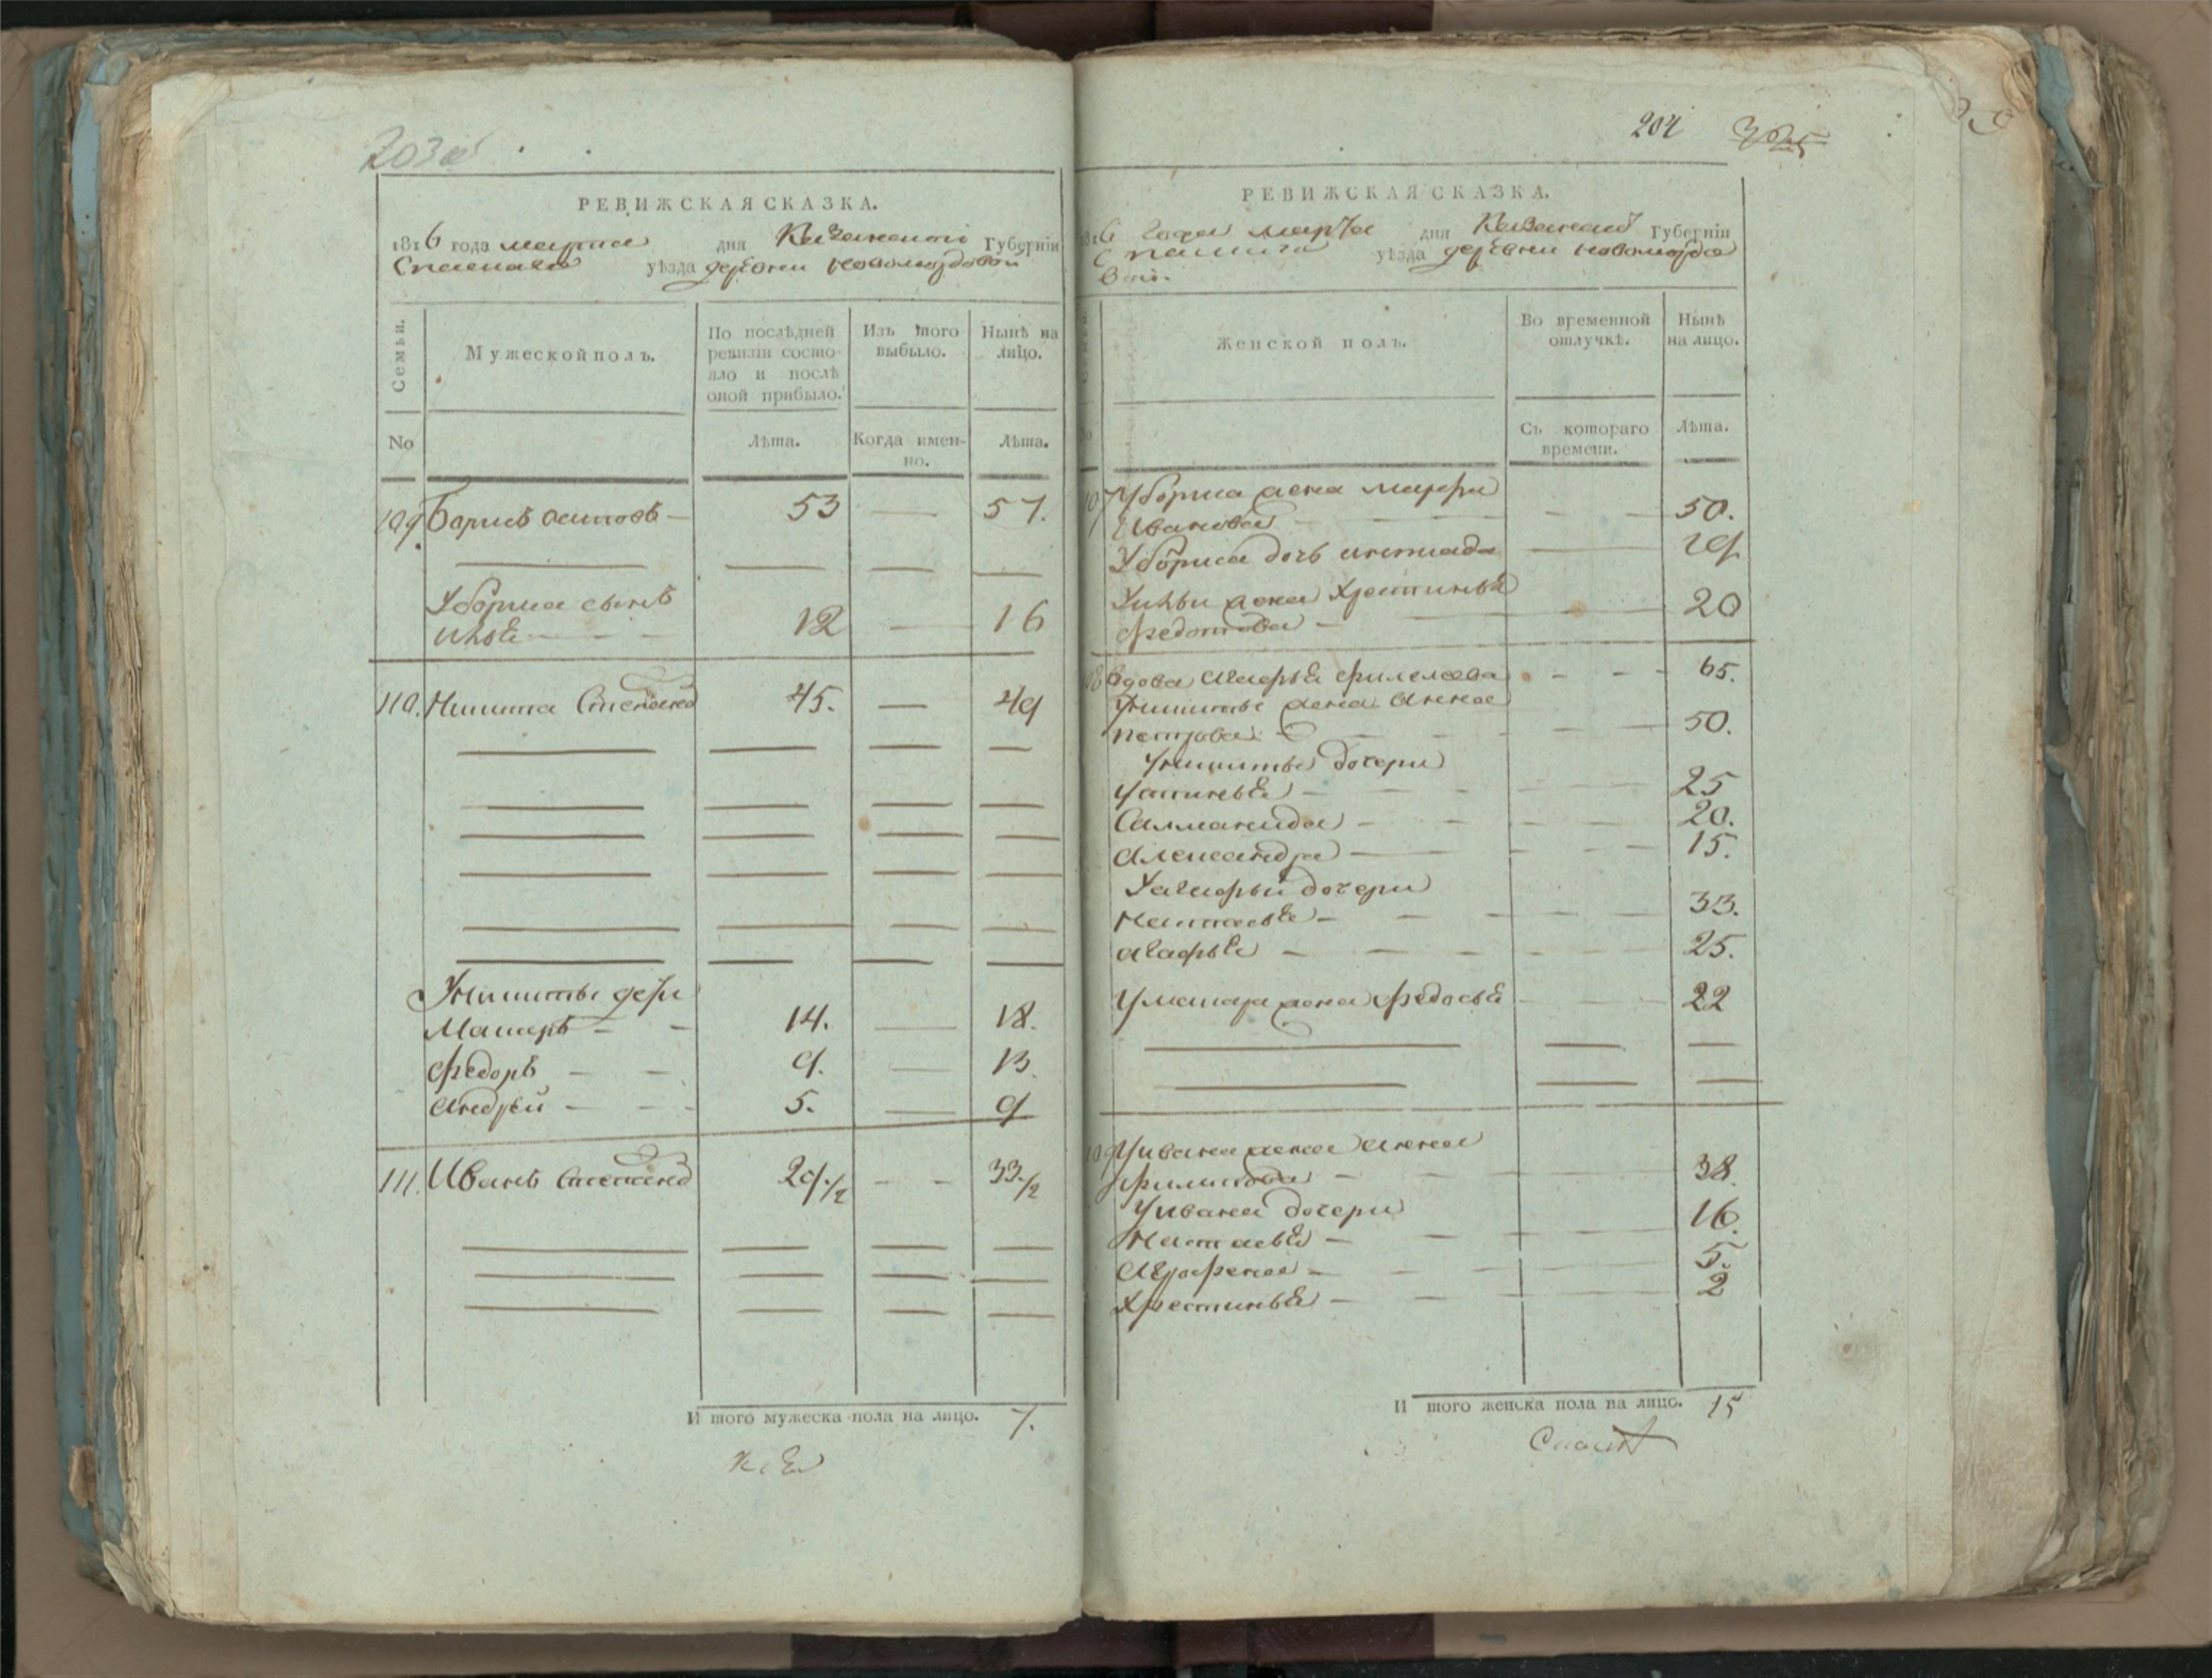 203 об
РЕВИЖСКАЯ СКАЗКА.
1816 года марта дня Казанской Губерніи
Спаскаго уѣзда деревни Новомордовой
Семьи.
Мужеской полъ.
По послѣдней ревизіи состояло и послѣ оной прибыло.
Изъ того выбыло.
Нынѣ на лицо.
No
Лѣта.
Когда именно.
Лѣта.
109. Борисъ Осиповъ 53 — 57.
У бориса сынъ
Илья 12 — 16
110. Никита Степановъ 45. — 49
У никиты дети
Макаръ 14. — 18.
Федоръ 9. — 13.
Андрей 5. — 9
111. Иванъ Степановъ 29 1/2 — 33 1/2
И того мужеска пола на лицо. 7.
204
РЕВИЖСКАЯ СКАЗКА.
1816 года марта дня Казанской Губерніи
Спаскаго уѣзда деревни новомордо
вой.
Женской полъ.
Во временной отлучкѣ.
Нынѣ на лицо.
Съ котораго времени.
Лѣта.
107 У бориса жена марфа
Иванова 50.
У бориса дочь 19
У ильи жена Хрестинья
федотова 20
108 вдова Агафья филипова 65.
У никиты жена Анна
петрова 50.
У никиты дочери
Устинья 25
Саломанида 20.
Александра 15.
У агафьи дочери
Настасья 33.
агафья 25.
У макара жена федосья 22
109 У ивана жена анна
филипова 38.
У ивана дочери
Настасья 16.
Аграфена 5.
Хрестинья 2
И того женска пола на лицо. 15